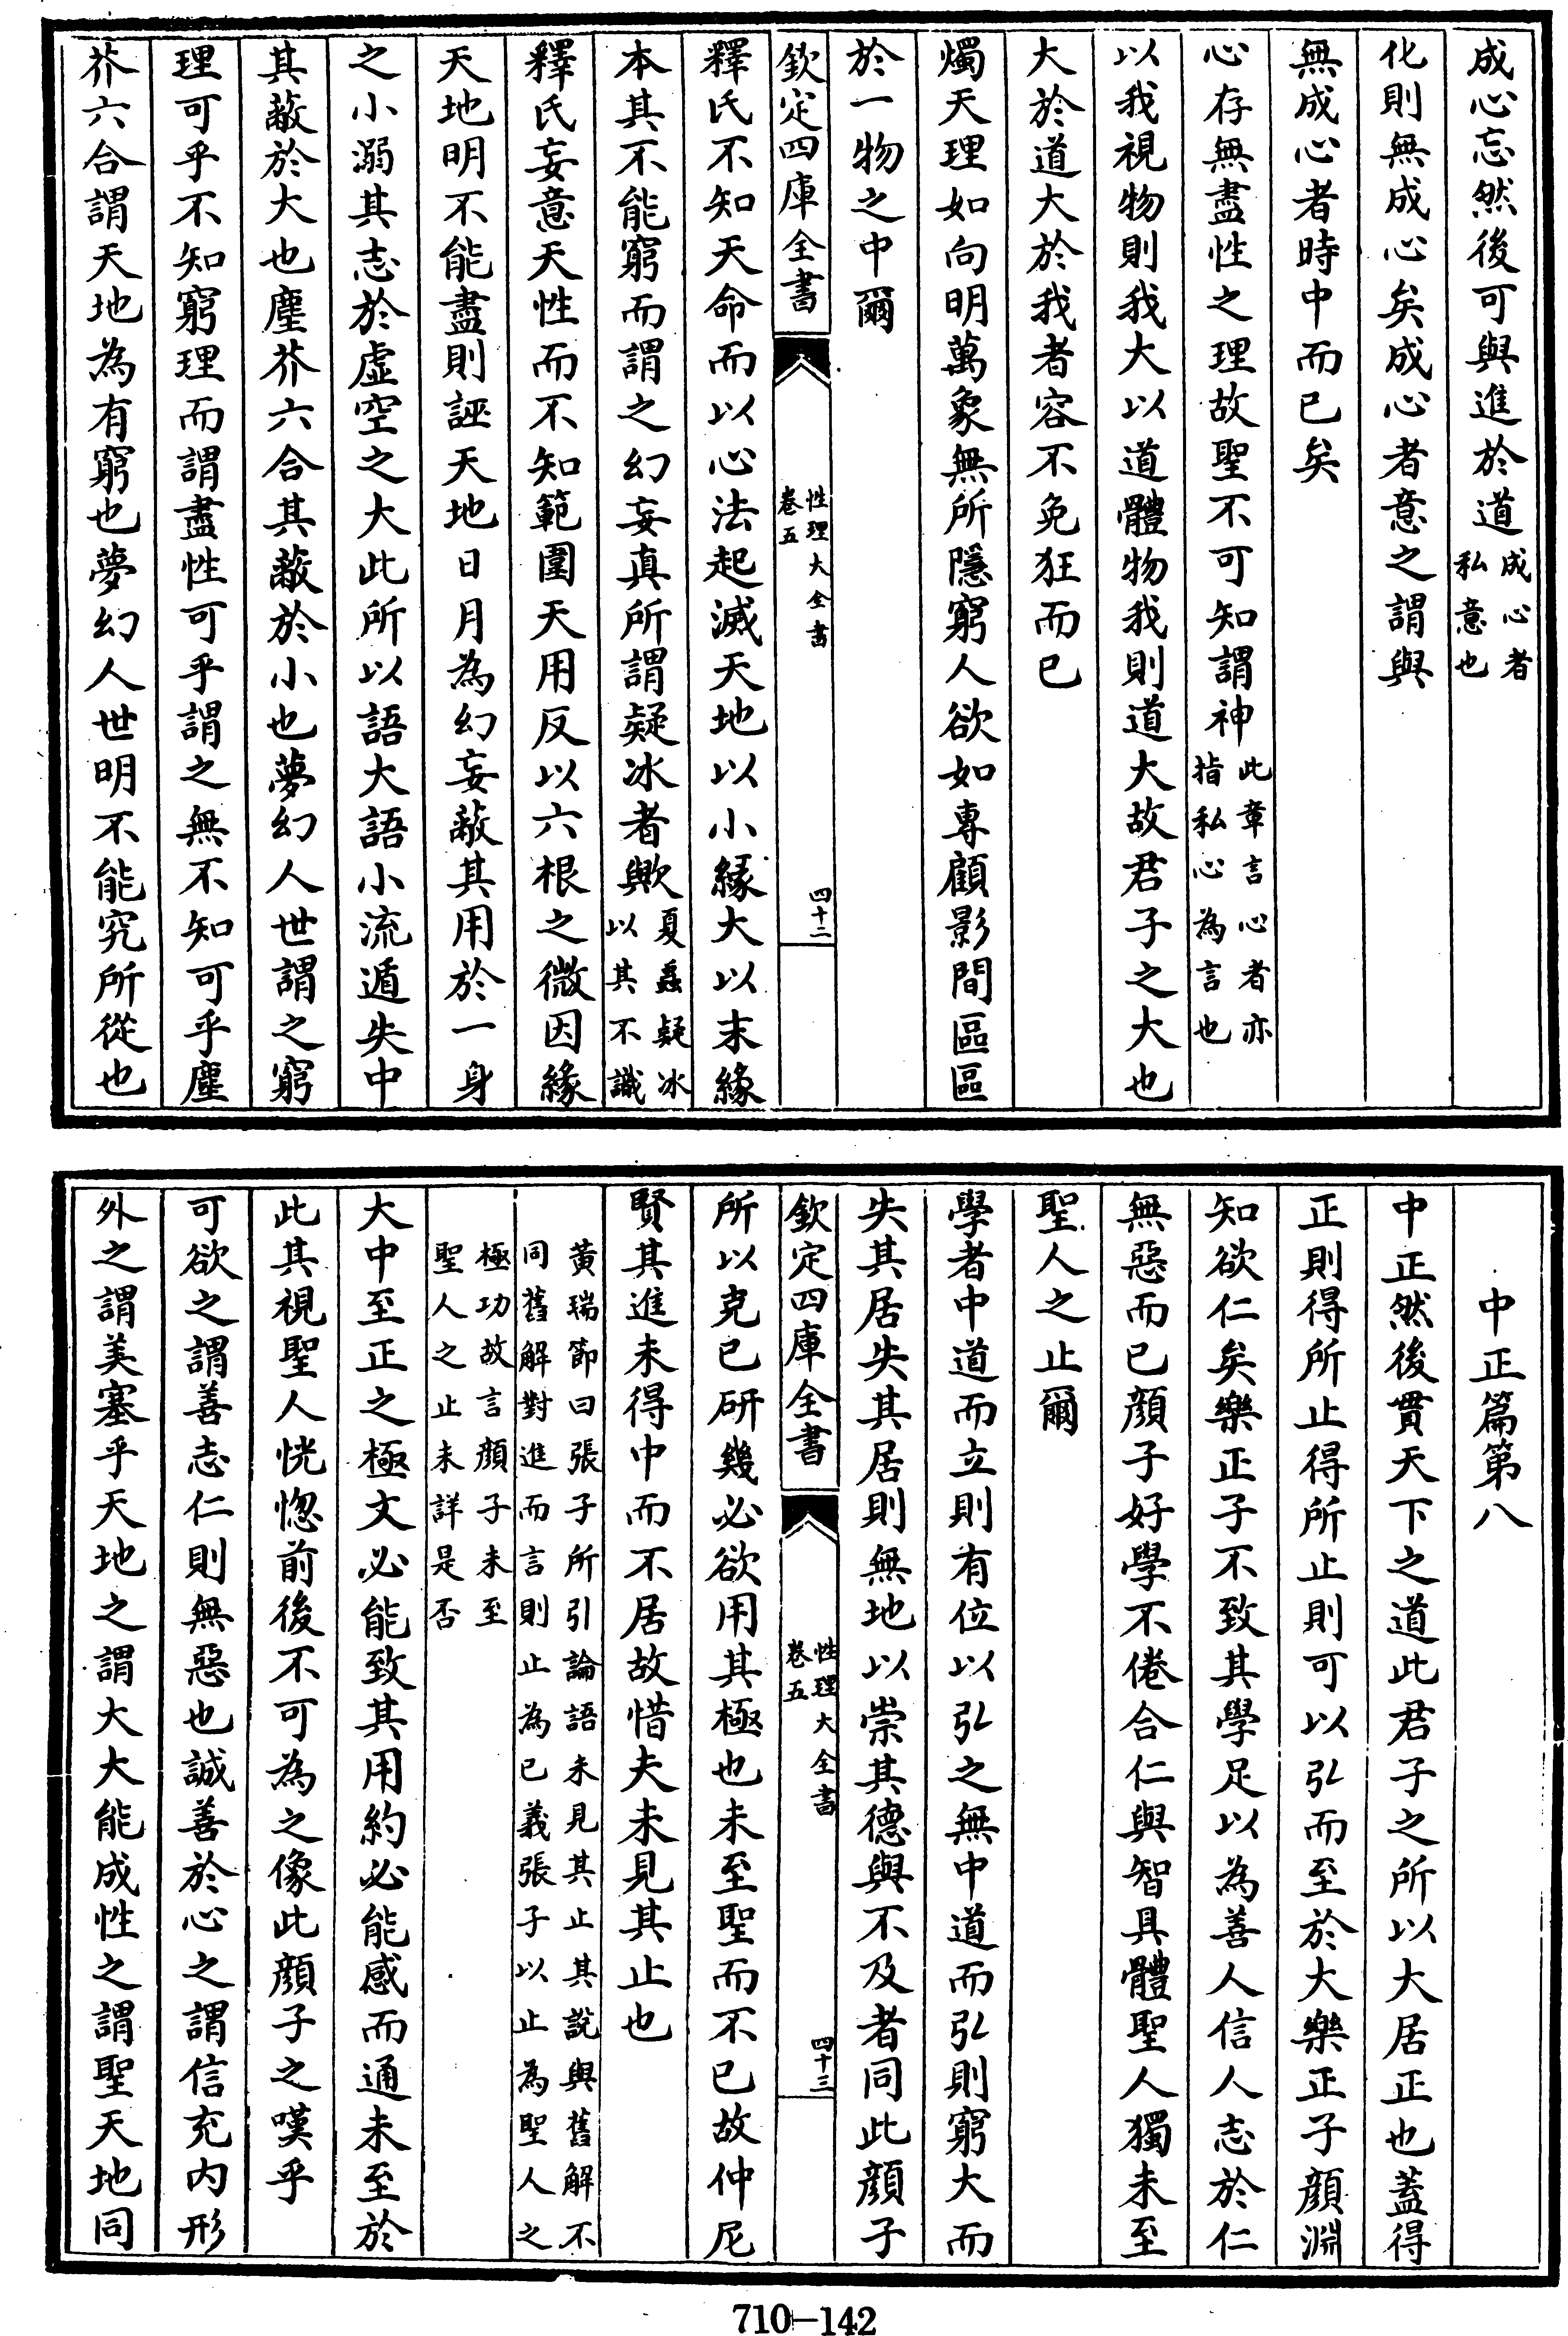 成心忘然後可與進於道成心者私意也
化則無成心矣成心者意之謂與
無成心者時中而已矣
心存無盡性之理故聖不可知謂神此章言心者亦指私心為言也
以我視物則我大以道體物我則道大故君子之大也
大於道大於我者容不免狂而已
燭天理如向明萬象無所隱窮人欲如專顧影間區區
於一物之中爾
欽定四庫全書 性理大全書卷五 四十二
釋氏不知天命而以心法起滅天地以小緣大以末緣
本其不能窮而謂之幻妄真所謂疑冰者歟夏蟲疑冰以其不識
釋氏妄意天性而不知範圍天用反以六根之微因緣
天地明不能盡則誣天地日月為幻妄蔽其用於一身
之小溺其志於虛空之大此所以語大語小流遁失中
其蔽於大也塵芥六合其蔽於小也夢幻人世謂之窮
理可乎不知窮理而謂盡性可乎謂之無不知可乎塵
芥六合謂天地為有窮也夢幻人世明不能究所從也
中正篇第八
中正然後貫天下之道此君子之所以大居正也蓋得
正則得所止得所止則可以弘而至於大樂正子顔淵
知欲仁矣樂正子不致其學足以為善人信人志於仁
無惡而已顔子好學不倦合仁與智具體聖人獨未至
聖人之止爾
學者中道而立則有位以弘之無中道而弘則窮大而
失其居失其居則無地以崇其德與不及者同此顔子
欽定四庫全書 性理大全書卷五 四十三
所以克已研幾必欲用其極也未至聖而不已故仲尼
賢其進未得中而不居故惜夫未見其止也
黃瑞節曰張子所引論語未見其止其說與舊解不
同舊解對進而言則止為已義張子以止為聖人之
極功故言顔子未至
聖人之止未詳是否
大中至正之極文必能致其用約必能感而通未至於
此其視聖人恍惚前後不可為之像此顔子之嘆乎
可欲之謂善志仁則無惡也誠善於心之謂信充內形
外之謂美塞乎天地之謂大大能成性之謂聖天地同
710-142